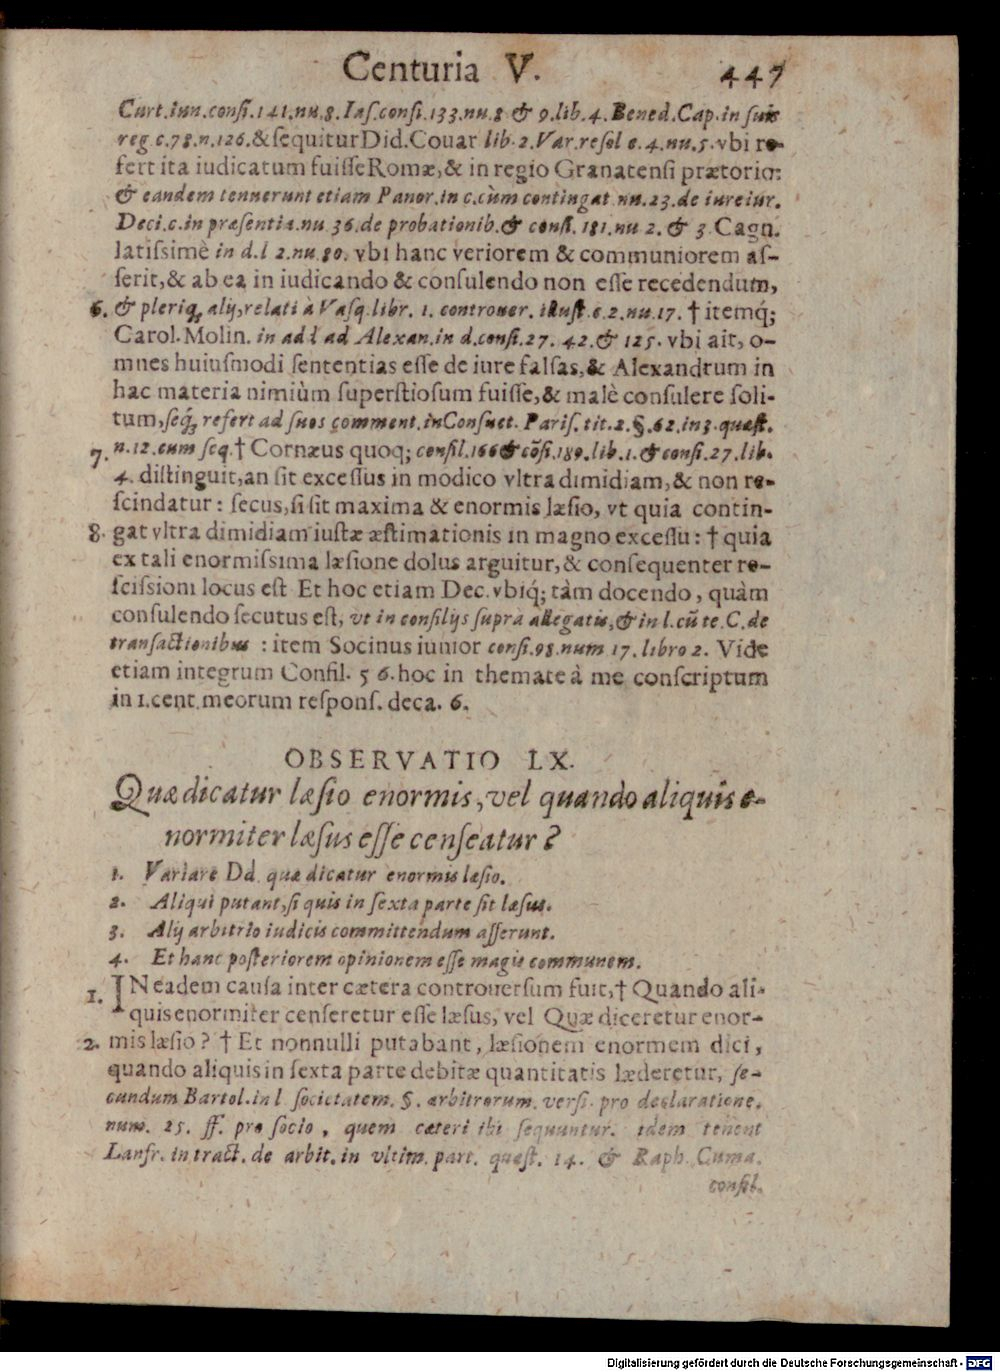 Centuria V. 447
Curt. iun. consi. 141. nu. 8. Ias. consi. 133. nu. 8 & 9. lib. 4. Bened. Cap. in suis
reg c. 78. n. 126. & sequitur Did. Couar lib. 2. Var. resol c. 4. nu. 5. vbi re-
fert ita iudicatum fuisse Romæ, & in regio Granatensi prætorio:
& eandem tennerunt etiam Panor. in c. cùm contingat nu. 23. de iureiur.
Deci. c. in præsentia. nu. 36. de probationib. & consi. 181. nu 2. & 3. Cagn.
latissimè in d. l 2. nu. 80. vbi hanc veriorem & communiorem as-
serit, & ab ea in iudicando & consulendo non esse recedendum,
6. & pleriq; alij, relati à Vasq. libr. 1. controuer. illust. c. 2. nu. 17. † itemq́;
Carol. Molin. in ad l ad Alexan. in d. consi. 27. 42. & 125. vbi ait, o-
mnes huiusmodi sententias esse de iure falsas, & Alexandrum in
hac materia nimiùm superstiosum fuisse, & malè consulere soli-
tum, seq́; refert ad suos comment. in Consuet. Paris. tit. 2. §. 62. in 3. quæst.
7. n. 12. cum seq. † Cornæus quoq; consil. 166 & cōsi. 189. lib. 1. & consi. 27. lib.
4. distinguit, an sit excessus in modico vltra dimidiam, & non re-
scindatur: secus, si sit maxima & enormis læsio, vt quia contin-
8. gat vltra dimidiam iustæ æstimationis in magno excessu: † quia
ex tali enormissima læsione dolus arguitur, & consequenter re-
scissioni locus est Et hoc etiam Dec. vbiq́; tàm docendo, quàm
consulendo secutus est, vt in consilijs suprà allegatis, & in l. cū te. C. de
transactionibus: item Socinus iunior consi. 98. num 17. libro 2. Vide
etiam integrum Consil. 56. hoc in themate à me conscriptum
in 1. cent. meorum respons. deca. 6.
OBSERVATIO LX.
Quæ dicatur læsio enormis, vel quando aliquis e-
normiter læsus esse censeatur?
1. Variare Dd. quæ dicatur enormis læsio.
2. Aliqui putant, si quis in sexta parte sit læsus.
3. Alij arbitrio iudicis committendum asserunt.
4. Et hanc posteriorem opinionem esse magis communem.
1. IN eadem causa inter cætera controuersum fuit, † Quando ali-
quis enormiter censeretur esse læsus, vel Quæ diceretur enor-
2. mis læsio? † Et nonnulli putabant, læsionem enormem dici,
quando aliquis in sexta parte debitæ quantitatis læderetur, se-
cundum Bartol. in l societatem. §. arbitrorum. versi. pro declaratione.
num. 25. ff. pro socio, quem cæteri ibi sequuntur. idem tenent
Lanfr. in tract. de arbit. in vltim. part. quæst. 14. & Raph. Cuma.
consil.
Digitalisierung gefördert durch die Deutsche Forschungsgemeinschaft - DFG